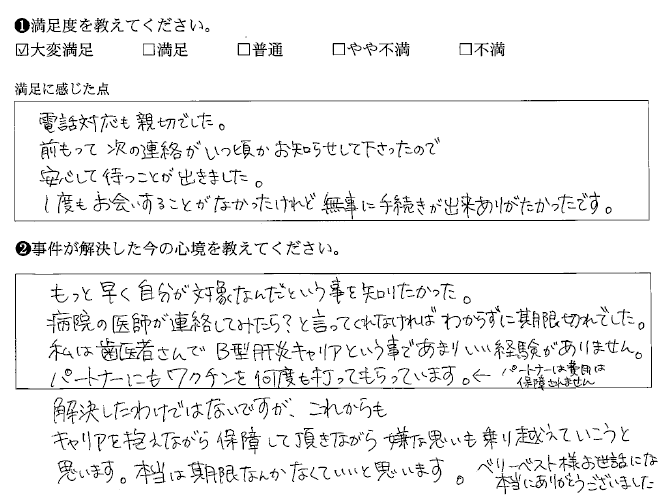 ❶満足度を教えてください。
☑大変満足 □満足 □普通 □やや不満 □不満
満足に感じた点
電話対応も親切でした。
前もって次の連絡がいつ頃かお知らせして下さったので
安心して待つことが出きました。
1度もお会いすることがなかったけれど無事に手続きが出来ありがたかったです。
❷事件が解決した今の心境を教えてください。
もっと早く自分が対象なんだという事を知りたかった。
病院の医師が連絡してみたら?と言ってくれなければわからずに期限切れでした。
私は歯医者さんでB型肝炎キャリアという事であまりいい経験がありません。
パートナーにもワクチンを何度も打ってもらっています。← パートナーは費用は
保障されません
解決したわけではないですが、これからも
キャリアを抱えながら保障して頂きながら嫌な思いも乗り越えていこうと
思います。本当は期限なんかなくていいと思います。 ベリーベスト様お世話にな
本当にありがとうございました